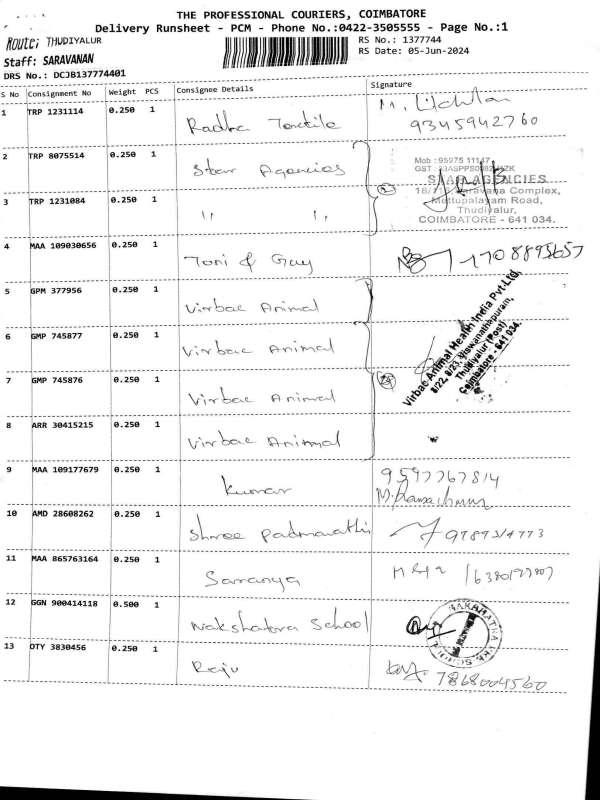 THE PROFESSIONAL COURIERS, COIMBATORE
Delivery Runsheet - PCM - Phone No.:0422-3505555 - Page No.:1
Route: THUDIYALUR
RS No.: 1377744
Staff: SARAVANAN
RS Date: 05-Jun-2024
DRS No.: DCJB137774401
S No Consignment No Weight PCS Consignee Details Signature
1 TRP 1231114 0.250 1 Radha Textile
9345942760
2 TRP 8075514 0.250 1 Star Agencies
Mob : 95975 11147
AGENCIES
Complex,
3 TRP 1231084 0.250 1 " "
Mettupalayam Road,
Thudiyalur,
COIMBATORE - 641 034.
4 MAA 109030656 0.250 1 Toni & Guy
5 GPM 377956 0.250 1 Virbac Animal
6 GMP 745877 0.250 1 Virbac Animal
Virbac Animal Health India Pvt.Ltd,
8/22, 8/23, Viswanathapuram,
Thudiyalur (Post)
Coimbatore - 641 034.
7 GMP 745876 0.250 1 Virbac Animal
8 ARR 30415215 0.250 1 Virbac Animal
9 MAA 109177679 0.250 1 Kumar
9597767814
10 AMD 28608262 0.250 1 Shree Padmavathi
11 MAA 865763164 0.250 1 Saranya
12 GGN 900414118 0.500 1 Nakshatra School
13 OTY 3830456 0.250 1 Raju
7868004560